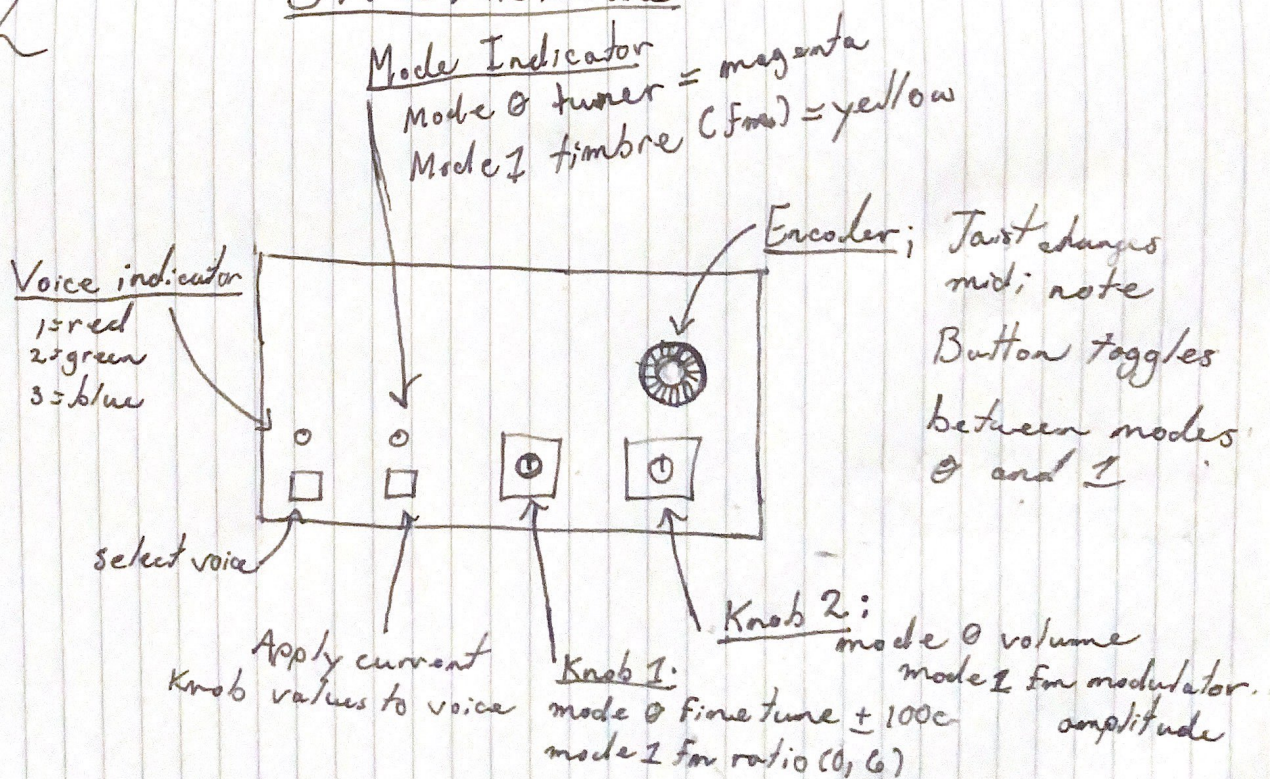 Mode Indicator
Mode 0 tuner = magenta
Mode 1 timbre (fm) = yellow
Encoder; Twist changes
midi note
Button toggles
between modes
0 and 1
Voice indicator
1=red
2=green
3=blue
select voice
Apply current
Knob values to voice
Knob 1:
mode 0 fine tune ± 100c
mode 1 fm ratio (0, 6)
Knob 2:
mode 0 volume
mode 1 fm modulator.
amplitude